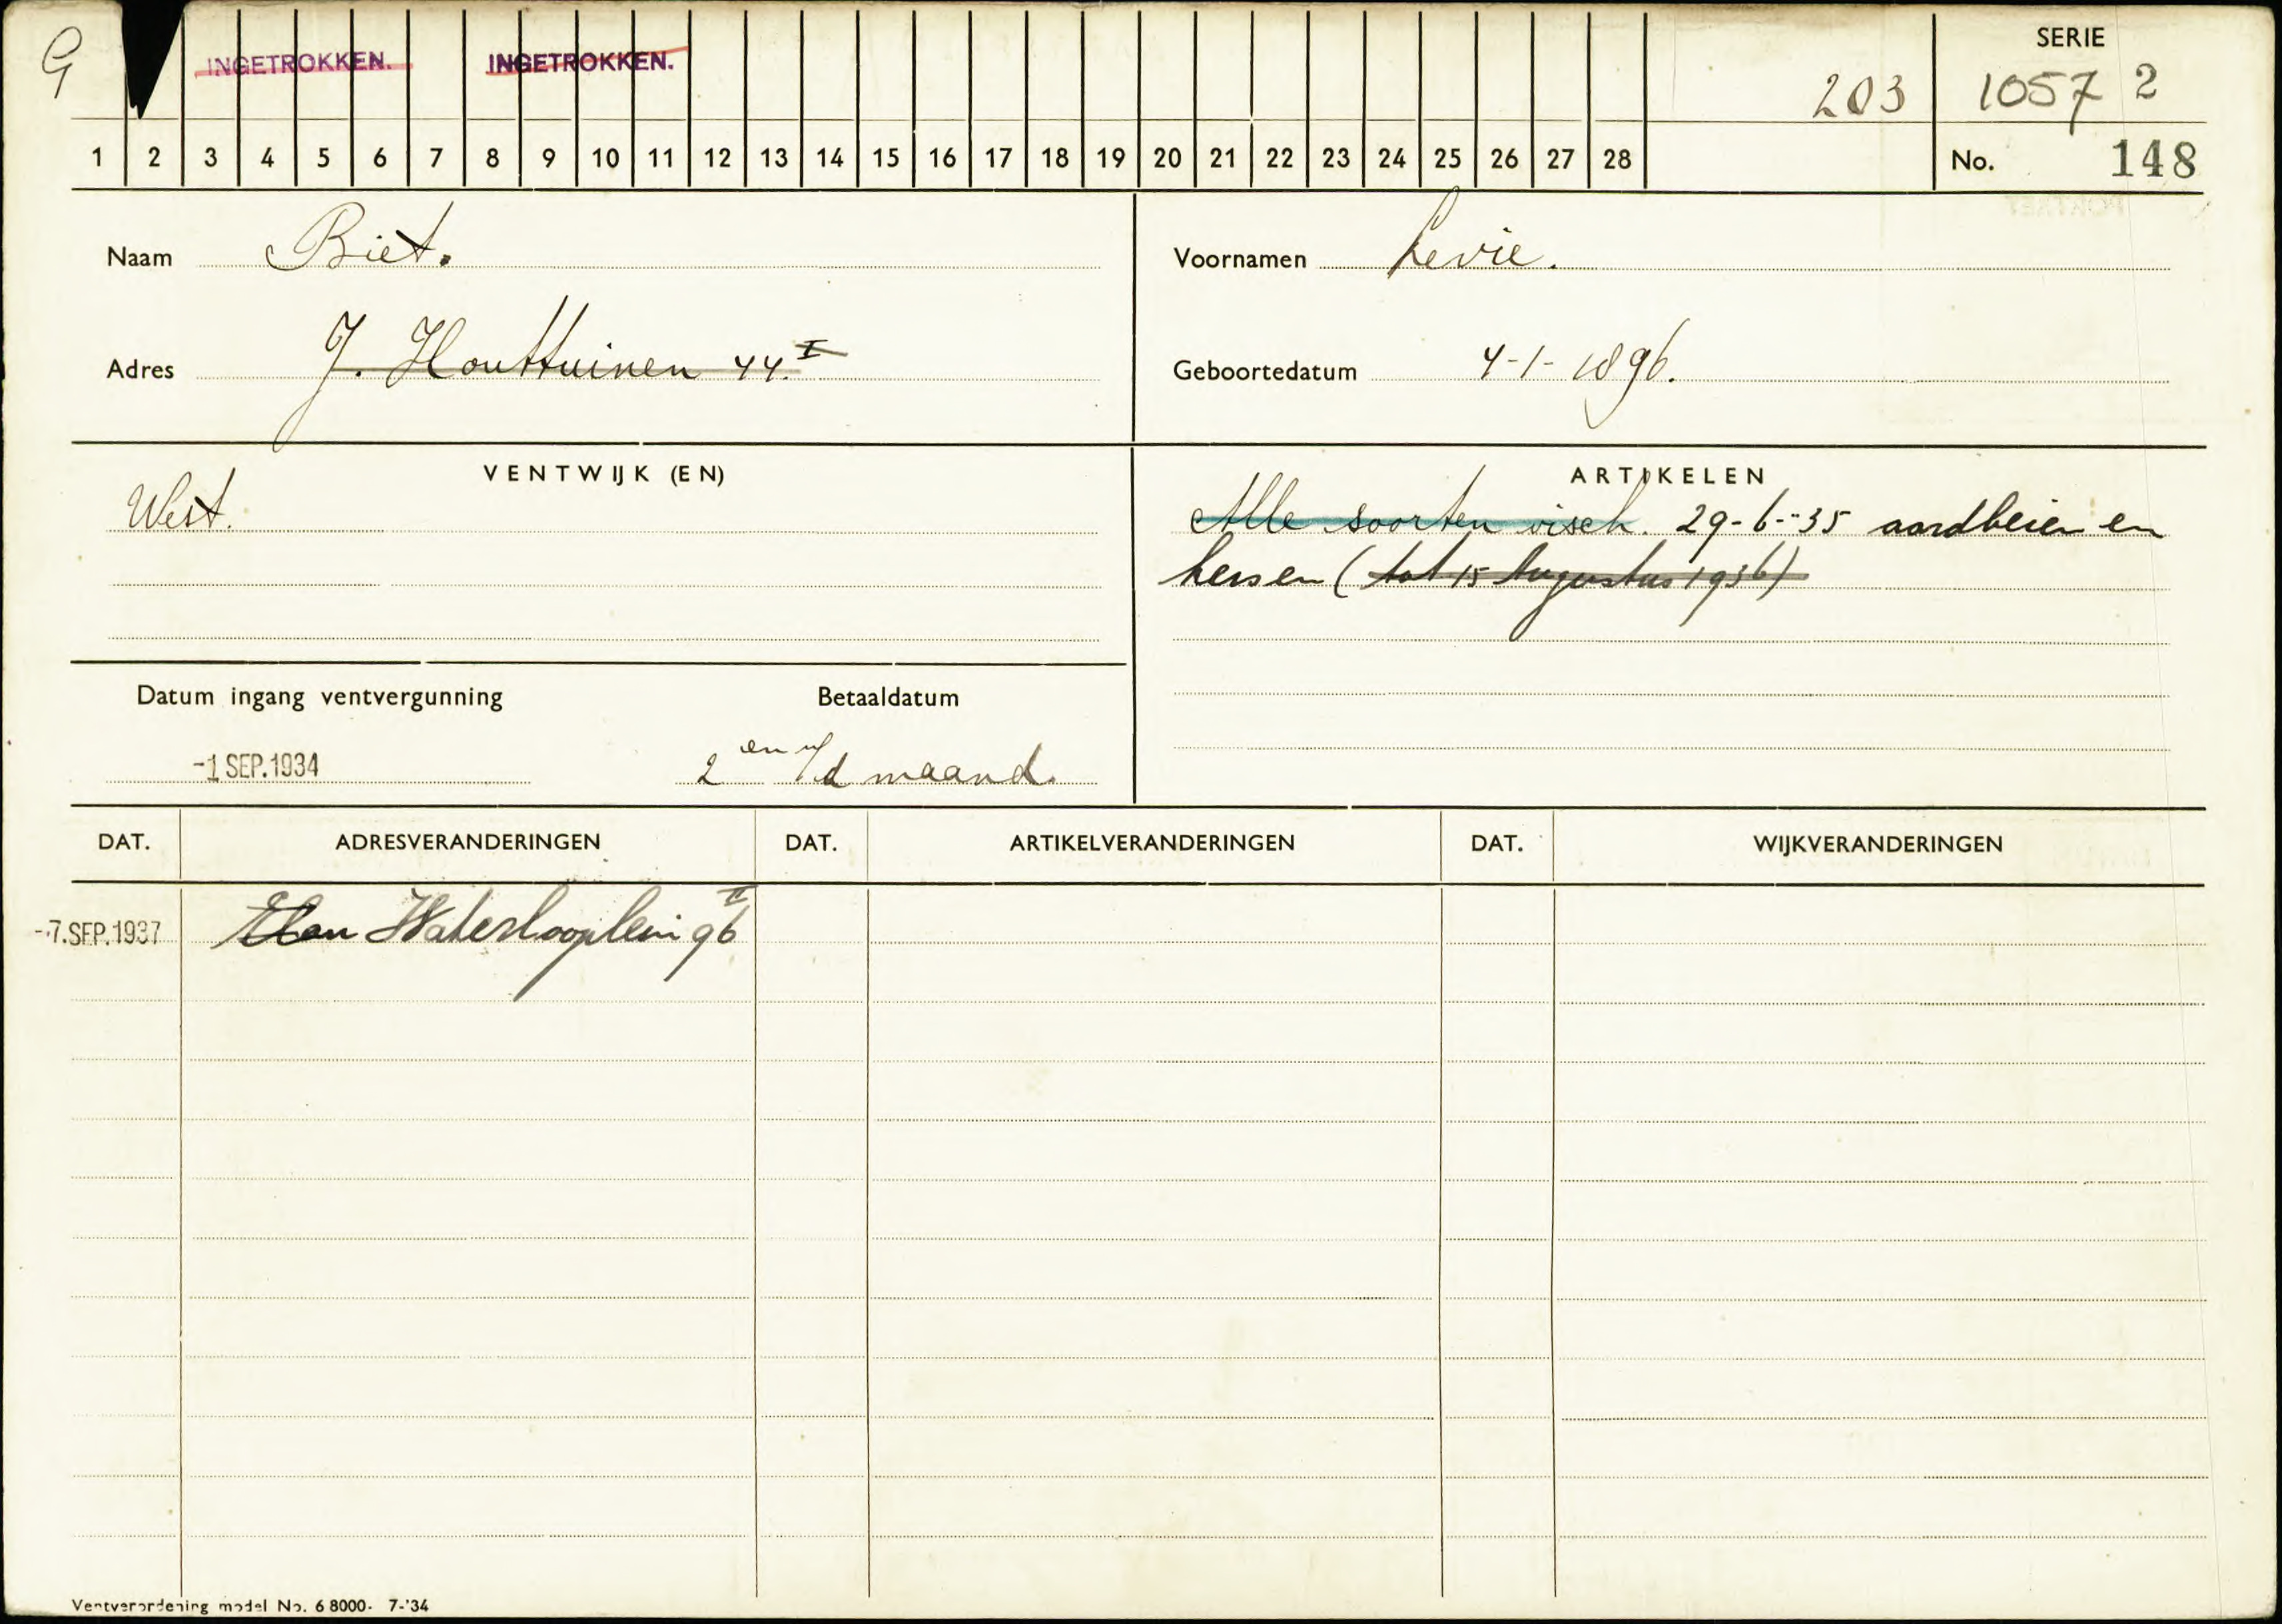 G INGETROKKEN. INGETROKKEN. SERIE
203 1057 2
1 2 3 4 5 6 7 8 9 10 11 12 13 14 15 16 17 18 19 20 21 22 23 24 25 26 27 28 No. 148
Naam Biet. Voornamen Levie.
Adres J. Houttuinen 44 I Geboortedatum 4-1-1896.
VENTWIJK (EN) ARTIKELEN
West. Alle soorten visch. 29-6-35 aardbeien en
kersen (tot 15 Augustus 1936)
Datum ingang ventvergunning Betaaldatum
-1 SEP. 1934 2 en v/d maand.
DAT. ADRESVERANDERINGEN DAT. ARTIKELVERANDERINGEN DAT. WIJKVERANDERINGEN
-7. SEP. 1937 Waterlooplein 96 II
Ventverordening model No. 6 8000- 7-'34